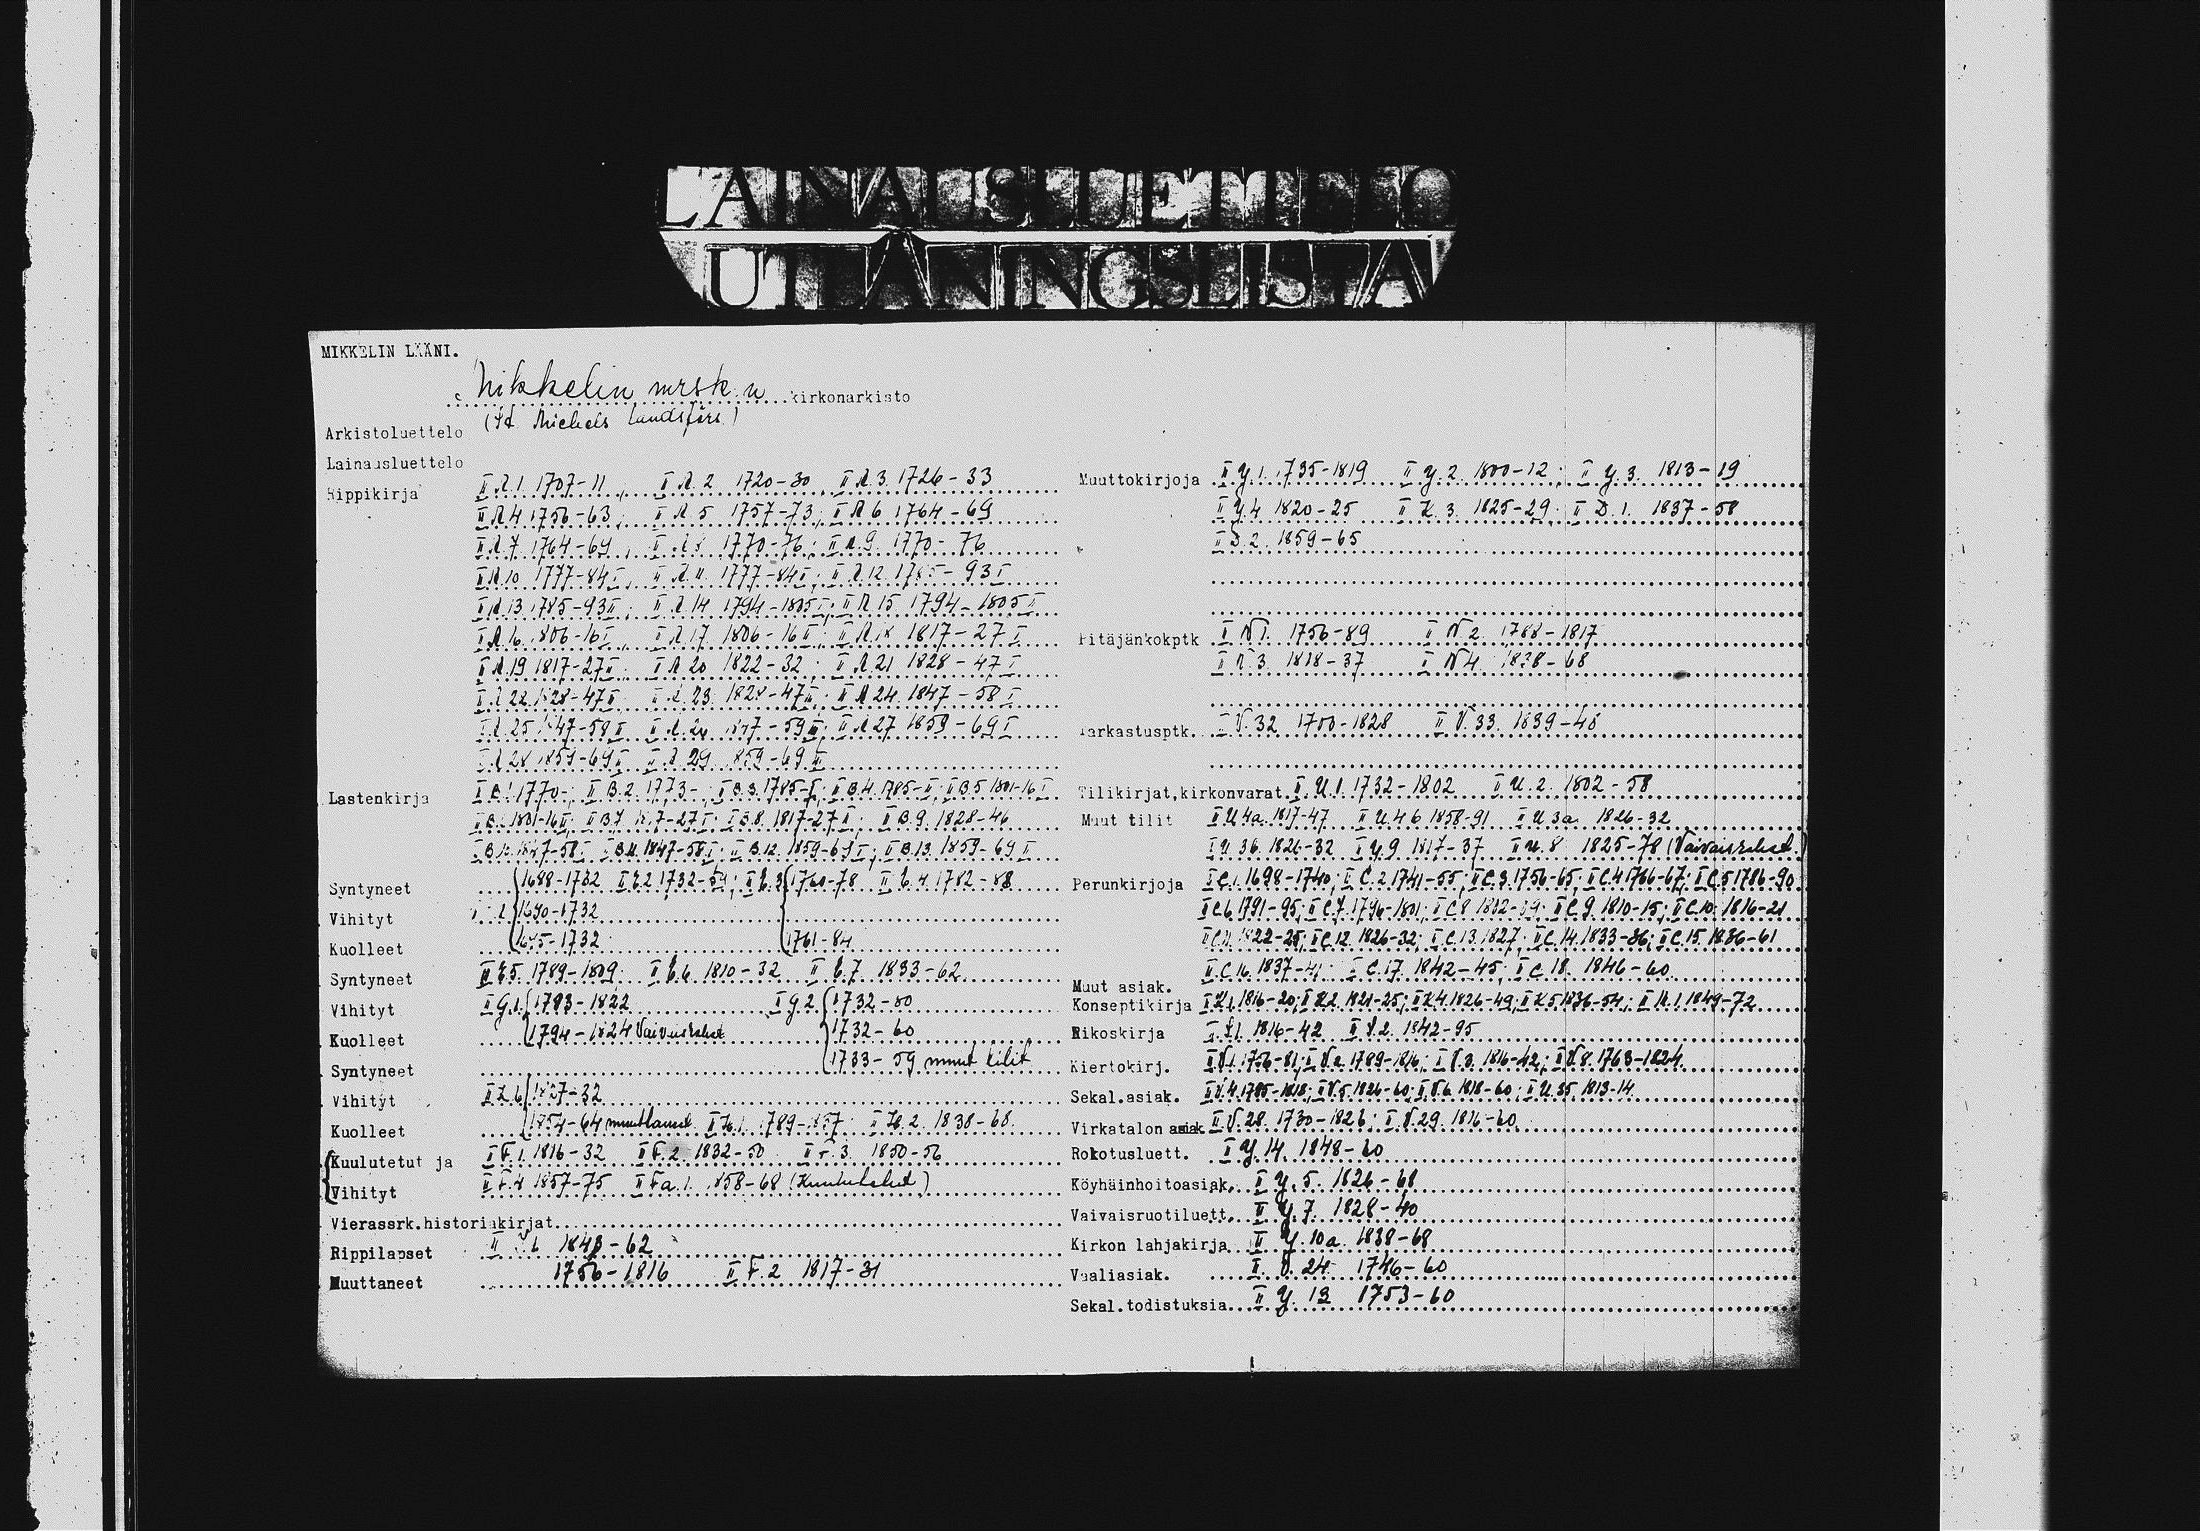 LAINAUSLUETTELO
UTLÅNINGSLISTA
MIKKELIN LÄÄNI.
Mikkelin mrsk:n kirkonarkisto
(St Michels Landsförs.)
Arkistoluettelo
Lainausluettelo
Rippikirja II A.1. 1707-11, II A.2 1720-30, II A.3. 1726-33
II A.4 1756-63; II A.5 1757-73; II A.6 1764-69
II A.7 1764-69, II A.8 1770-76; II A.9 1770-76
II A.10 1777-84 I, II A.11. 1777-84 I; II A.12. 1785-93 I
II A.13 1785-93 II; II A.14 1794-1805 I; II A.15. 1794-1805 II
II A.16. 1806-16 I, II A.17. 1806-16 II; II A.18 1817-27 I
II A.19 1817-27 II; II A.20 1822-32; II A.21 1828-47 I
II A.22. 1828-47 II II A.23. 1828-47 III; II A.24. 1847-58 I
II A.25 1847-58 II II A.26 1847-59 III; II A.27 1859-69 I
II A.28 1859-69 II II A.29 1859-69 III
Lastenkirja II B.1 1770-; II B.2. 1773-; II B.3. 1785-I; II B.4. 1785-II; II B.5 1801-16 I
II B.6 1801-16 II; II B.7 1817-27 I; II B.8. 1817-27 II; II B.9. 1828-46
II B.10. 1847-58 I II B.11. 1847-58 I; II B.12. 1859-69 I; II B.13. 1859-69 II
Syntyneet 1688-1732 II E.2 1732-59; II E.3 1760-78 II E.4. 1782-88
Vihityt 1690-1732
Kuolleet 1695-1732 1761-84
Syntyneet II E.5. 1789-1809; II E.6. 1810-32 II E.7. 1833-62
Vihityt II G.1. 1793-1822 II G.2. 1732-80
Kuolleet 1794-1824 1732-60
Syntyneet 1733-59 muut tilit
Vihityt 1827-32
Kuolleet 1854-64 II H.1. 1789-1857 II H.2. 1838-68
Kuulutetut ja II F.1. 1816-32 II F.2. 1832-50 II F.3. 1850-56
Vihityt II F.4 1857-75 II Fa.1. 1858-68
Vierassrk.historiakirjat
Rippilapset 1843-62
Muuttaneet 1756-1816 II F.2 1817-31
Muuttokirjoja II Y.1. 1735-1819 II Y.2. 1800-12; II Y.3. 1813-19
II Y.4 1820-25 II K.3. 1825-29; II D.1. 1837-58
II D.2. 1859-65
Pitäjänkokptk II N1. 1756-89 II N2. 1788-1817
II N.3. 1818-37 II N4. 1838-68
Tarkastusptk. II V.32 1700-1828 II V.33. 1839-48
Tilikirjat,kirkonvarat II U.1. 1732-1802 II U.2. 1802-58
Muut tilit II U.4a. 1817-47 II U.4b 1858-91 II U.3a. 1826-32
II U.3b. 1826-32 II Y.9 1817-37 II U.8 1825-78
Perunkirjoja II C.1. 1698-1740; II C.2 1741-55; II C.3. 1756-65; II C.4 1766-67; II C.5 1786-90
II C.6 1791-95; II C.7. 1796-1801; II C.8 1802-09; II C.9. 1810-15; II C.10. 1816-21
II C.11. 1822-25; II C.12. 1826-32; II C.13. 1827; II C.14. 1833-36; II C.15. 1836-61
II C.16. 1837-41 II C.17. 1842-45; II C.18. 1846-60
Muut asiak.
Konseptikirja II K.1. 1816-20; II K.2. 1821-25; II K.4. 1826-49; II K.5 1836-54; II K.1. 1849-72
Rikoskirja 1816-42 1842-95
Kiertokirj. II V.1. 1756-81; II V.2. 1789-1816; II V.3. 1816-42; II V.8. 1763-1824
Sekal.asiak. II V.4. 1785-1818; II V.5. 1826-60; II V.6. 1818-60; II U.35. 1813-14
Virkatalon asiak II V.28. 1730-1826; II V.29. 1816-60
Rokotusluett. II Y.14. 1848-60
Köyhäinhoitoasiak. II Y.5. 1826-68
Vaivaisruotiluett. II Y.7. 1828-40
Kirkon lahjakirja II Y.10a. 1838-68
Vaaliasiak. II V.24 1746-60
Sekal.todistuksia II Y.13 1753-60